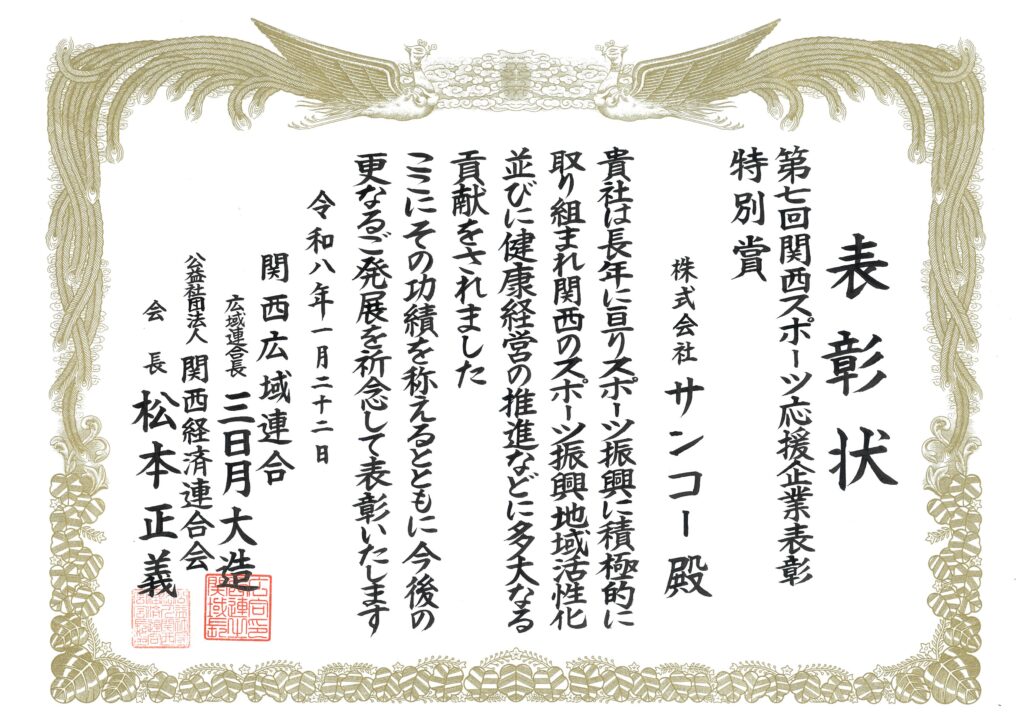 表彰状
第七回関西スポーツ応援企業表彰
特別賞
株式会社 サンコー殿
貴社は長年に亘りスポーツ振興に積極的に
取り組まれ関西のスポーツ振興地域活性化
並びに健康経営の推進などに多大なる
貢献をされました
ここにその功績を称えるとともに今後の
更なるご発展を祈念して表彰いたします
令和八年一月二十二日
関西広域連合
広域連合長 三日月大造
公益社団法人 関西経済連合会
会長 松本正義